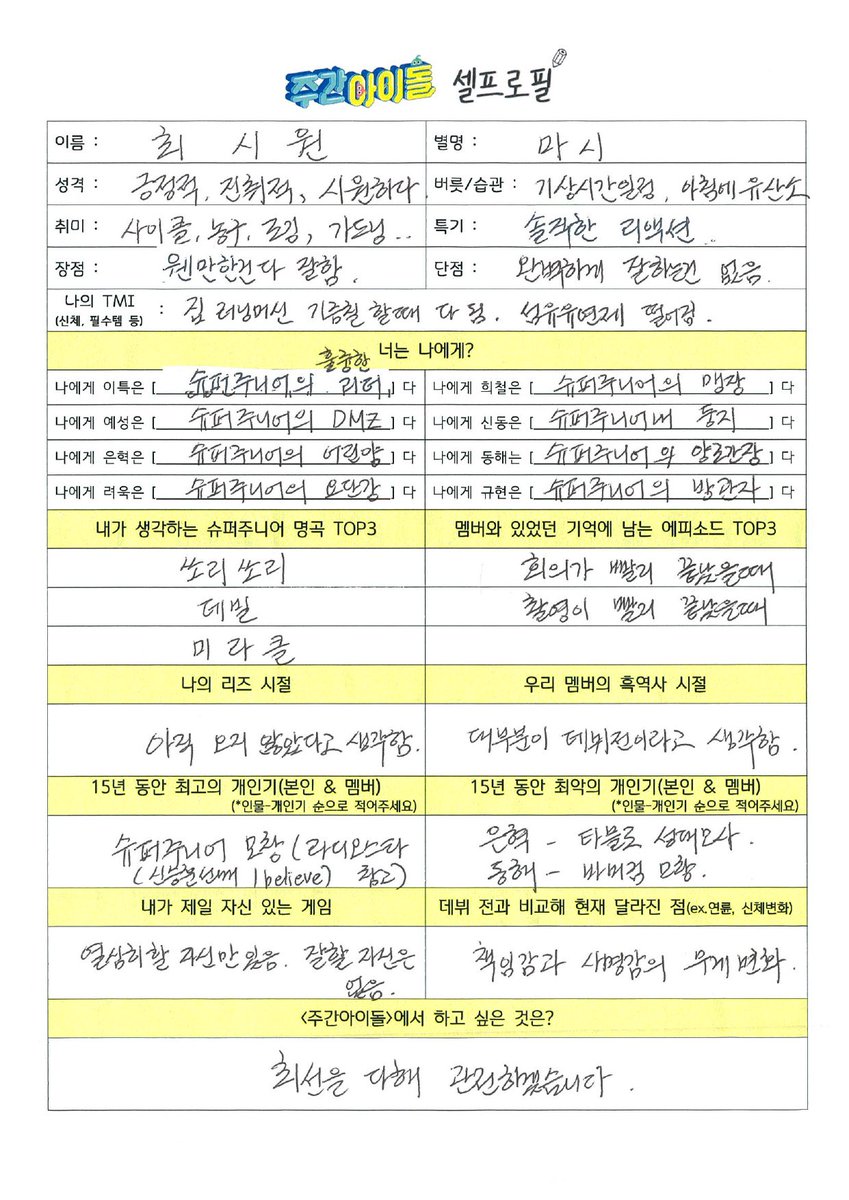 주간아이돌 셀프로필
이름 : 최 시 원 별명 : 마 시
성격 : 긍정적, 진취적, 시원하다. 버릇/습관 : 기상시간일정, 아침에 유산소
취미 : 사이클, 농구, 조깅, 가드닝.. 특기 : 솔직한 리액션
장점 : 웬만한건 다 잘함. 단점 : 완벽하게 잘하는건 없음.
나의 TMI
(신체, 필수템 등) : 집 러닝머신 기름칠 할때 다 됨. 섬유유연제 떨어짐.
너는 나에게?
훌륭한
나에게 이특은 [ 슈퍼주니어의 리더 ] 다 나에게 희철은 [ 슈퍼주니어의 맹장 ] 다
나에게 예성은 [ 슈퍼주니어의 DMZ ] 다 나에게 신동은 [ 슈퍼주니어내 둥지 ] 다
나에게 은혁은 [ 슈퍼주니어의 어린양 ] 다 나에게 동해는 [ 슈퍼주니어의 양조간장 ] 다
나에게 려욱은 [ 슈퍼주니어의 요단강 ] 다 나에게 규현은 [ 슈퍼주니어의 방관자 ] 다
내가 생각하는 슈퍼주니어 명곡 TOP3 멤버와 있었던 기억에 남는 에피소드 TOP3
쏘리 쏘리 회의가 빨리 끝났을때
데빌 촬영이 빨리 끝났을때
미 라 클
나의 리즈 시절 우리 멤버의 흑역사 시절
아직 오지 않았다고 생각함. 대부분이 데뷔전이라고 생각함.
15년 동안 최고의 개인기(본인 & 멤버) 15년 동안 최악의 개인기(본인 & 멤버)
(*인물-개인기 순으로 적어주세요) (*인물-개인기 순으로 적어주세요)
슈퍼주니어 모창 (라디오스타 은혁 - 타블로 성대모사.
(신승훈선배께 I believe) 참고) 동해 - 바비킴 모창.
내가 제일 자신 있는 게임 데뷔 전과 비교해 현재 달라진 점(ex.연륜, 신체변화)
열심히할 자신만 있음. 잘할 자신은 책임감과 사명감의 무게 변화.
없음.
<주간아이돌>에서 하고 싶은 것은?
최선을 다해 관전하겠습니다.